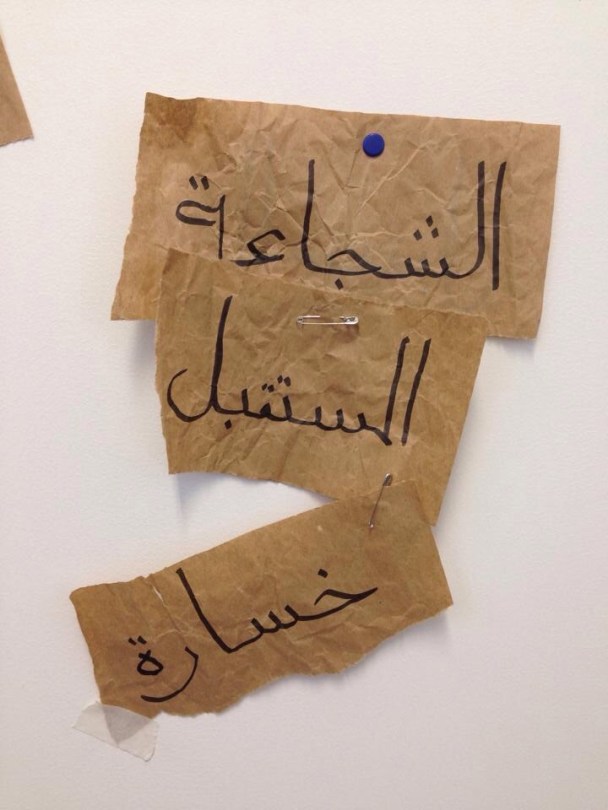 الشجاعة
المستقبل
خسارة